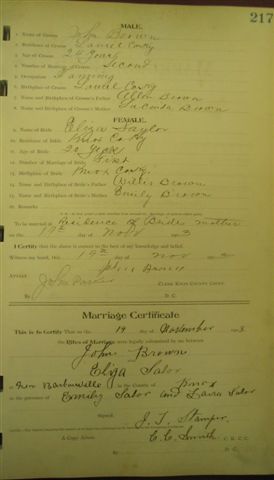 217
MALE.
1. Name of Groom John Brown
2. Residence of Groom Laurel Co Ky
3. Age of Groom 24 years
4. Number of Marriage of Groom Second
5. Occupation Farming
6. Birthplace of Groom Laurel Co Ky
7. Name and Birthplace of Groom's Father Brown
8. Name and Birthplace of Groom's Mother Brown
FEMALE.
9. Name of Bride Eliza Saylor
10. Residence of Bride Knox Co Ky
11. Age of Bride
12. Number of Marriage of Bride First
13. Birthplace of Bride Knox Co Ky
14. Name and Birthplace of Bride's Father Brown
15. Name and Birthplace of Bride's Mother Emily Brown
16. Remarks
To be married at Residence of Bride mother
on the 19th day of Nov 3
I Certify that the above is correct to the best of my knowledge and belief.
Witness my hand, this 19th day of Nov
John Brown
Attest:
CLERK KNOX COUNTY COURT.
By D. C.
Marriage Certificate
This is to Certify That on the 19 day of November
the Rites of Marriage were legally solemnized by me between
John Brown
and Eliza Salor
at Near Barbourville in the County of Knox
in the presence of Salor and Laura Salor
Signed, J. T. Stamper
A Copy Attest: C. K. C. C.
By D. C.